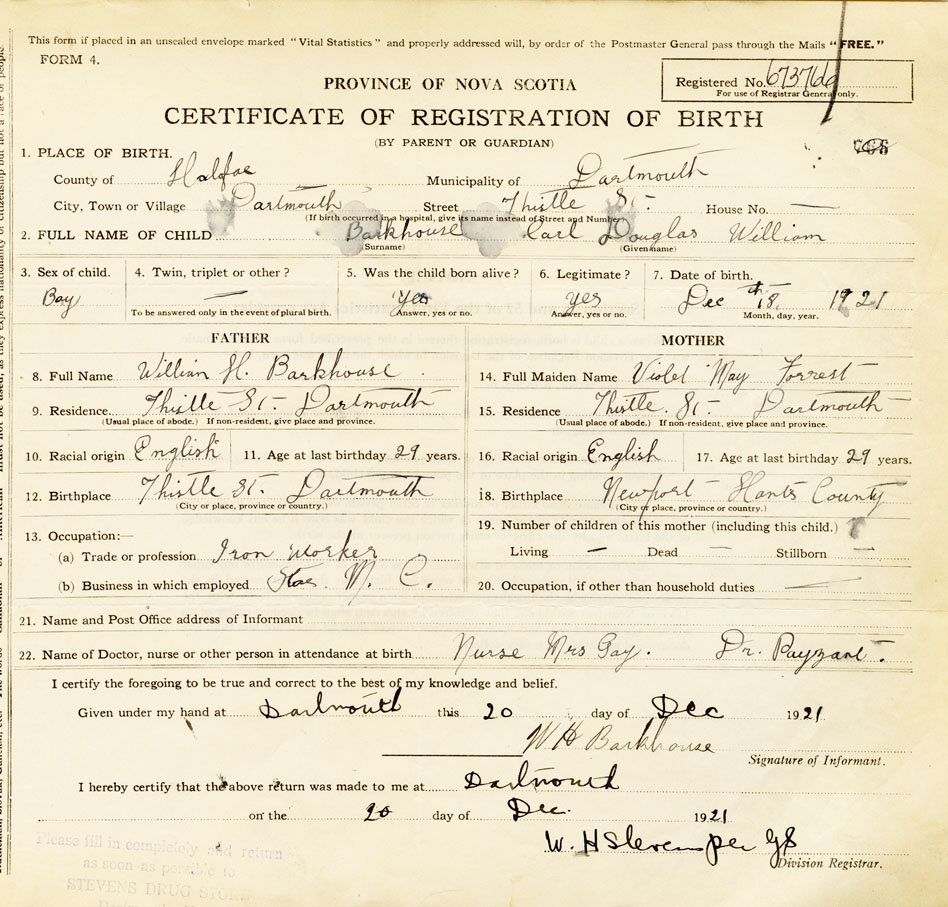 This form if placed in an unsealed envelope marked "Vital Statistics" and properly addressed will, by order of the Postmaster General pass through the Mails "FREE."
FORM 4.
PROVINCE OF NOVA SCOTIA
Registered No.
For use of Registrar General only.
CERTIFICATE OF REGISTRATION OF BIRTH
(BY PARENT OR GUARDIAN)
1. PLACE OF BIRTH.
County of Halifax Municipality of Dartmouth
City, Town or Village Dartmouth Street Thistle St. House No. —
(If birth occurred in a hospital, give its name instead of Street and Number)
2. FULL NAME OF CHILD Barkhouse Carl Douglas William
(Surname) (Given name)
3. Sex of child. 4. Twin, triplet or other? 5. Was the child born alive? 6. Legitimate? 7. Date of birth.
Boy — Yes Yes Dec 18th 1921
To be answered only in the event of plural birth. Answer, yes or no. Answer, yes or no. Month, day, year.
FATHER
8. Full Name William H. Barkhouse
9. Residence. Thistle St. Dartmouth
(Usual place of abode.) If non-resident, give place and province.
10. Racial origin English 11. Age at last birthday 29 years.
12. Birthplace Thistle St. Dartmouth
(City or place, province or country.)
13. Occupation:—
(a) Trade or profession Iron Worker
(b) Business in which employed M. C.
MOTHER
14. Full Maiden Name Violet May Forrest
15. Residence Thistle. St. Dartmouth
(Usual place of abode.) If non-resident, give place and province.
16. Racial origin English 17. Age at last birthday 29 years.
18. Birthplace Newport Hants County
(City or place, province or country.)
19. Number of children of this mother (including this child.)
Living — Dead — Stillborn —
20. Occupation, if other than household duties —
21. Name and Post Office address of Informant
22. Name of Doctor, nurse or other person in attendance at birth Nurse Mrs Gay. Dr. Payzant.
I certify the foregoing to be true and correct to the best of my knowledge and belief.
Given under my hand at Dartmouth this 20 day of Dec 1921
W H Barkhouse
Signature of Informant.
I hereby certify that the above return was made to me at Dartmouth
on the 20 day of Dec. 1921
W. H Stevens per GS
Division Registrar.
Please fill in completely and return
as soon as possible to
STEVENS DRUG STORE